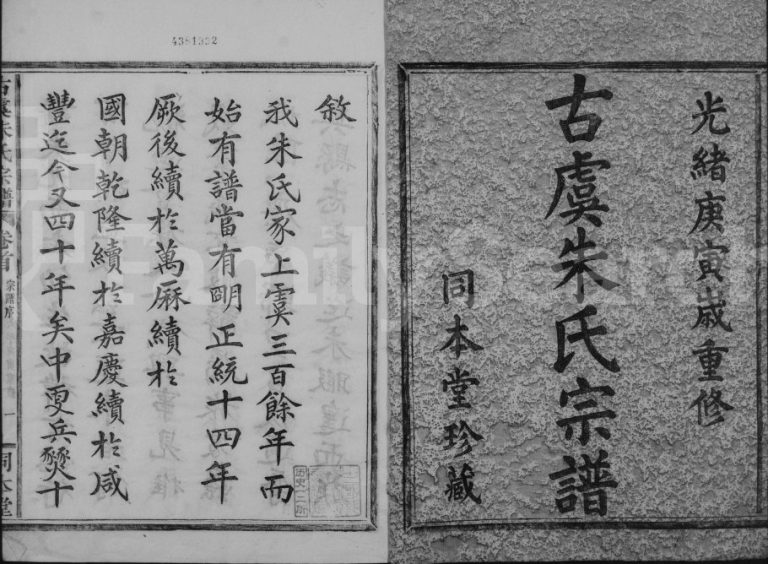 光緒庚寅歲重修
古虞朱氏宗譜
同本堂珍藏
4381332
敘
我朱氏家上虞三百餘年而
始有譜當有明正統十四年
厥後續於萬厤續於
國朝乾隆續於嘉慶續於咸
豐迄今又四十年矣中更兵燹十
古虞朱氏宗譜 卷首 宗譜序 一 同本堂
FamilySearch